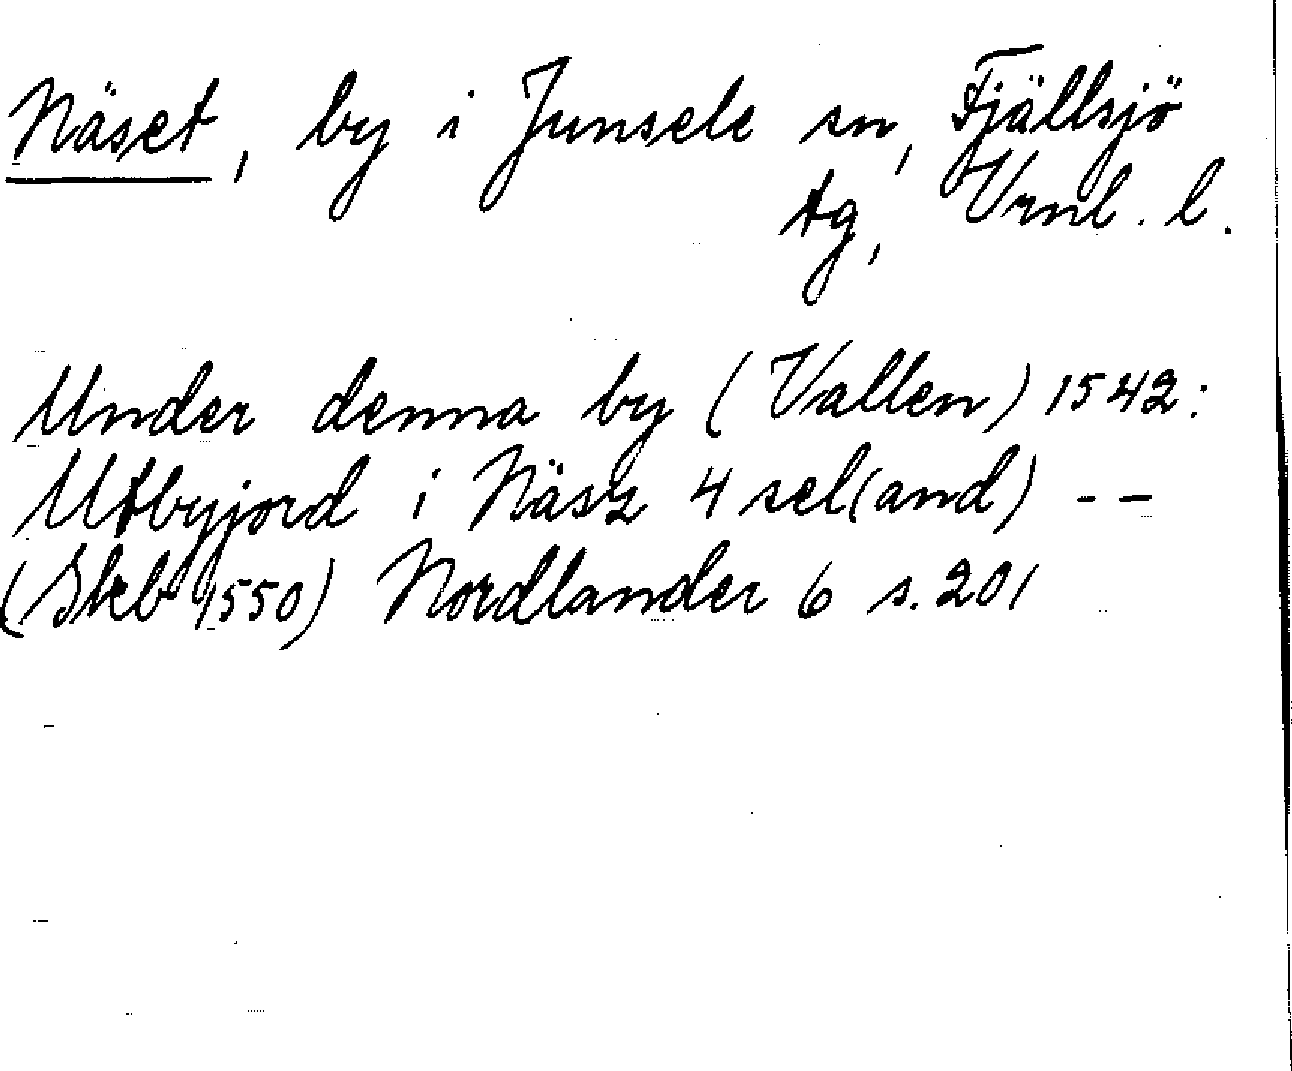 Näset, by i Junsele sn, Fjällsjö
tg, Vrnl. l.
Under denna by (Vallen) 1542:
Utbyjord i Näsz 4 sel(and) - -
(Skb 1550) Nordlander 6 s. 201